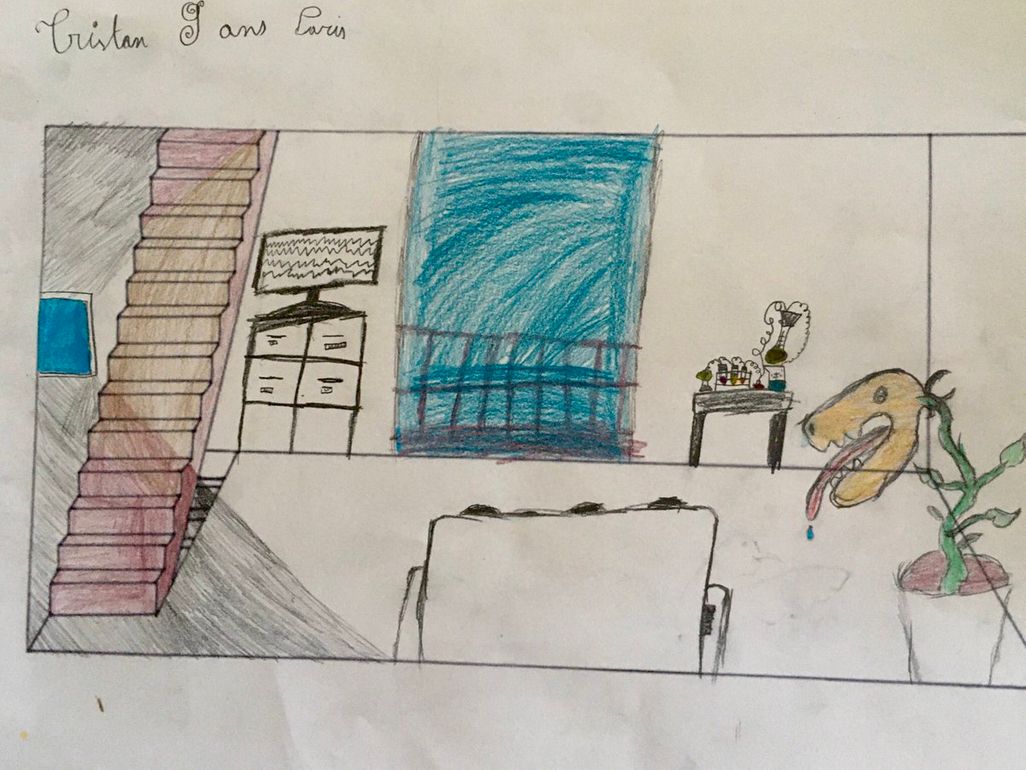 Tristan 9 ans Paris